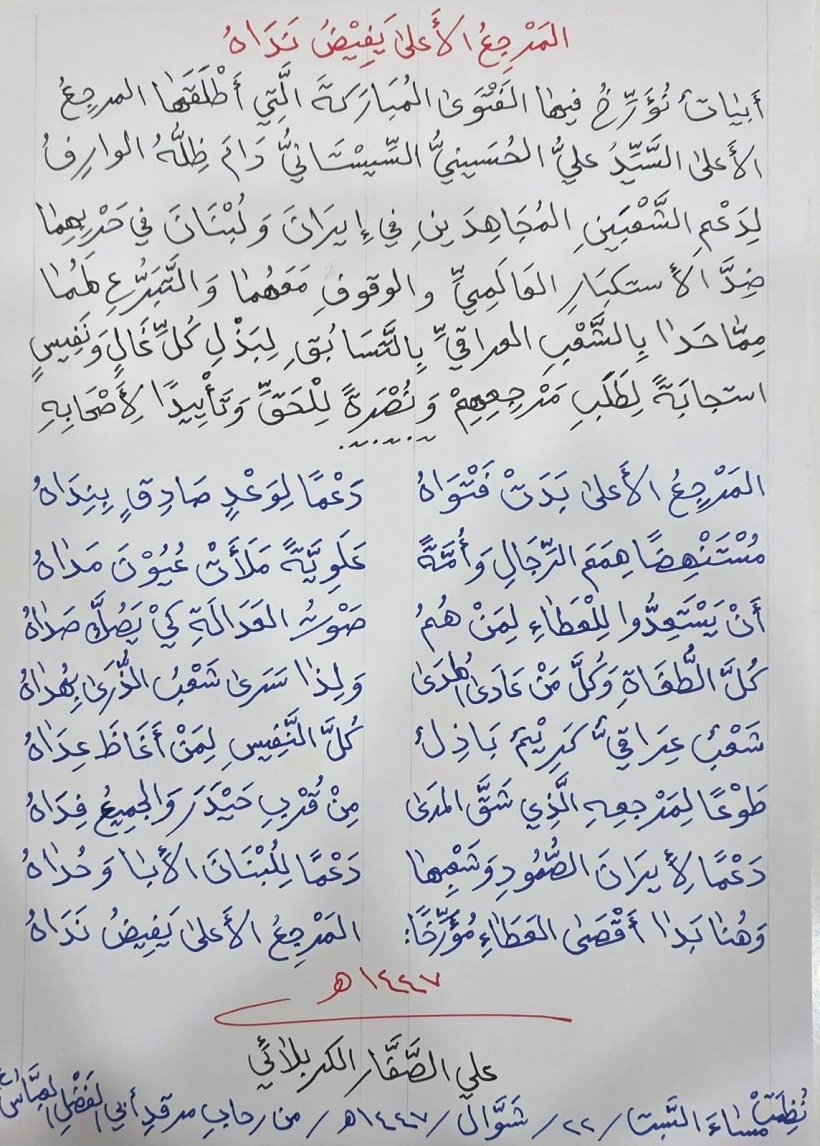 المَرْجِعُ الأَعلىٰ يَفِيْضُ نَدَاهُ
أبياتٌ نُؤَرِّخُ فيها الفَتْوَىٰ المُبَارَكَةَ الَّتِي أَطْلَقَهَا المرجعُ
الأعلىٰ السَّيِّدُ عليٌّ الحُسَينيُّ السِّيسْتَانيُّ دَامَ ظِلُّهُ الوارِفُ
لِدَعْمِ الشَّعْبَينِ المُجَاهِدَينِ في إيرَانَ وَلُبْنَانَ في حَرْبِهِما
ضِدَّ الأستكبَارِ العَالَمِيِّ والوقوفِ مَعَهُما وَالتَّبَرُّعِ لَهُمَا
مِمَّا حَدَا بِالشَّعْبِ العراقيِّ بِالتَّسَابُقِ لِبَذْلِ كُلِّ غَالٍ وَنَفِيسٍ
استجابَةً لِطَلَبِ مَرْجِعِهِمْ وَنُصْرَةً لِلْحَقِّ وَتَأْيِيدًا لِأَصْحَابِهِ
المَرْجِعُ الأَعلىٰ بَدَتْ فَتْوَاهُ دَعْمًا لِوَعْدٍ صَادِقٍ بِنِدَاهُ
مُسْتَنْهِضًا هِمَمَ الرِّجَالِ وَأُمَّةً عَلَوِيَّةً مَلَأَتْ عُيُوْنَ مَدَاهُ
أَنْ يَسْتَعِدُّوا لِلْعَطَاءِ لِمَنْ هُمُ صَوْتُ العَدَالَةِ كَيْ يَصُكَّ صَدَاهُ
كُلَّ الطُّغَاةِ وَكُلَّ مَنْ عَادَىٰ الهُدَىٰ وَلِذَا سَرَىٰ شَعْبُ الذُّرَىٰ بِهُدَاهُ
شَعْبٌ عِرَاقيٌّ كَرِيْمٌ بَاذِلٌ كُلَّ النَّفِيسِ لِمَنْ أَغَاظَ عِدَاهُ
طَوْعًا لِمَرْجِعِهِ الَّذِي شَقَّ المَدَىٰ مِنْ قُرْبِ حَيْدَرَ وَالجَمِيعُ فِدَاهُ
دَعْمًا لِأيرَانَ الصُّمُودِ وَشَعْبِهَا دَعْمًا لِلُبْنَانَ الأبَا وَحُدَاهُ
وَهُنَا بَدَا أَقْصَىٰ العَطَاءِ مُؤَرِّخًا: المَرْجِعُ الأعلىٰ يَفِيضُ نَدَاهُ
١٤٤٧هـ
علي الصَّفَّار الكربلائي
نُظِمَتْ مسَاءَ السَّبت / ٢٢ / شَوَّال / ١٤٤٧هـ / من رحابِ مرقدِ أبي الفَضْلِ العبَّاسِ ع